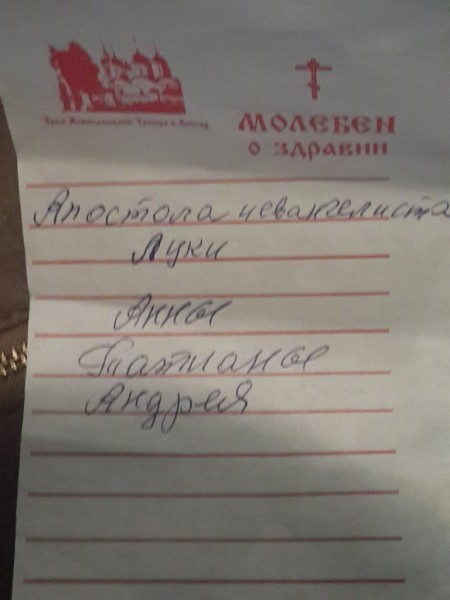 Храм Живоначальной Троицы
МОЛЕБЕН
О ЗДРАВИИ
Апостола и евангелиста
Луки
Анны
Татианы
Андрея